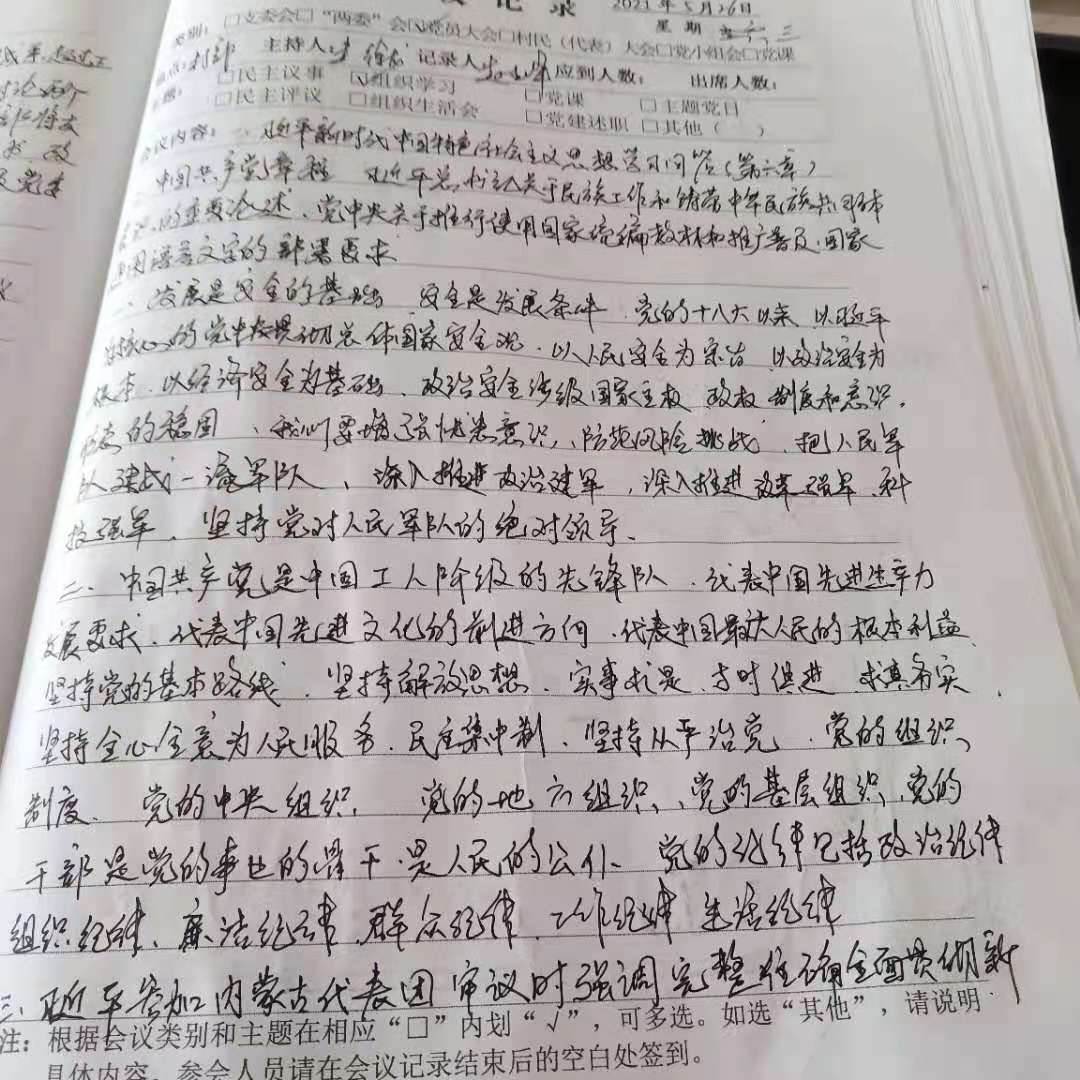 记 录 2021年5月26日
类别：□支委会□“两委”会☑党员大会□村民（代表）大会□党小组会□党课 星期 三
地点：村部 主持人： 记录人： 应到人数： 出席人数：
□民主议事 ☑组织学习 □党课 □主题党日
□民主评议 □组织生活会 □党建述职 □其他（ ）
会议内容：一、习近平新时代中国特色社会主义思想学习问答（第六章）
中国共产党章程 习近平总书记关于民族工作和铸牢中华民族共同体
意识的重要论述、党中央关于推行使用国家统编教材和推广普及国家
通用语言文字的部署要求
一、发展是安全的基础 安全是发展条件，党的十八大以来 以习近平
为核心的党中央贯彻总体国家安全观，以人民安全为宗旨 以政治安全为
根本，以经济安全为基础，政治安全涉级国家主权 政权 制度和意识
形态的稳固、我们要增强忧患意识，防范风险挑战 把人民军
队建成一流军队，深入推进政治建军，深入推进改革强军 科
技强军，坚持党对人民军队的绝对领导、
二、中国共产党是中国工人阶级的先锋队，代表中国先进生产力
发展要求、代表中国先进文化的前进方向，代表中国最广大人民的根本利益
坚持党的基本路线，坚持解放思想，实事求是，与时俱进 求真务实，
坚持全心全意为人民服务，民主集中制，坚持从严治党，党的组织
制度、党的中央组织，党的地方组织、党的基层组织，党的
干部是党的事业的骨干，是人民的公仆、党的纪律包括政治纪律
组织纪律、廉洁纪律，群众纪律，工作纪律 生活纪律
三、习近平参加内蒙古代表团审议时强调完整准确全面贯彻新
注：根据会议类别和主题在相应“□”内划“√”，可多选。如选“其他”，请说明
具体内容，参会人员请在会议记录结束后的空白处签到。